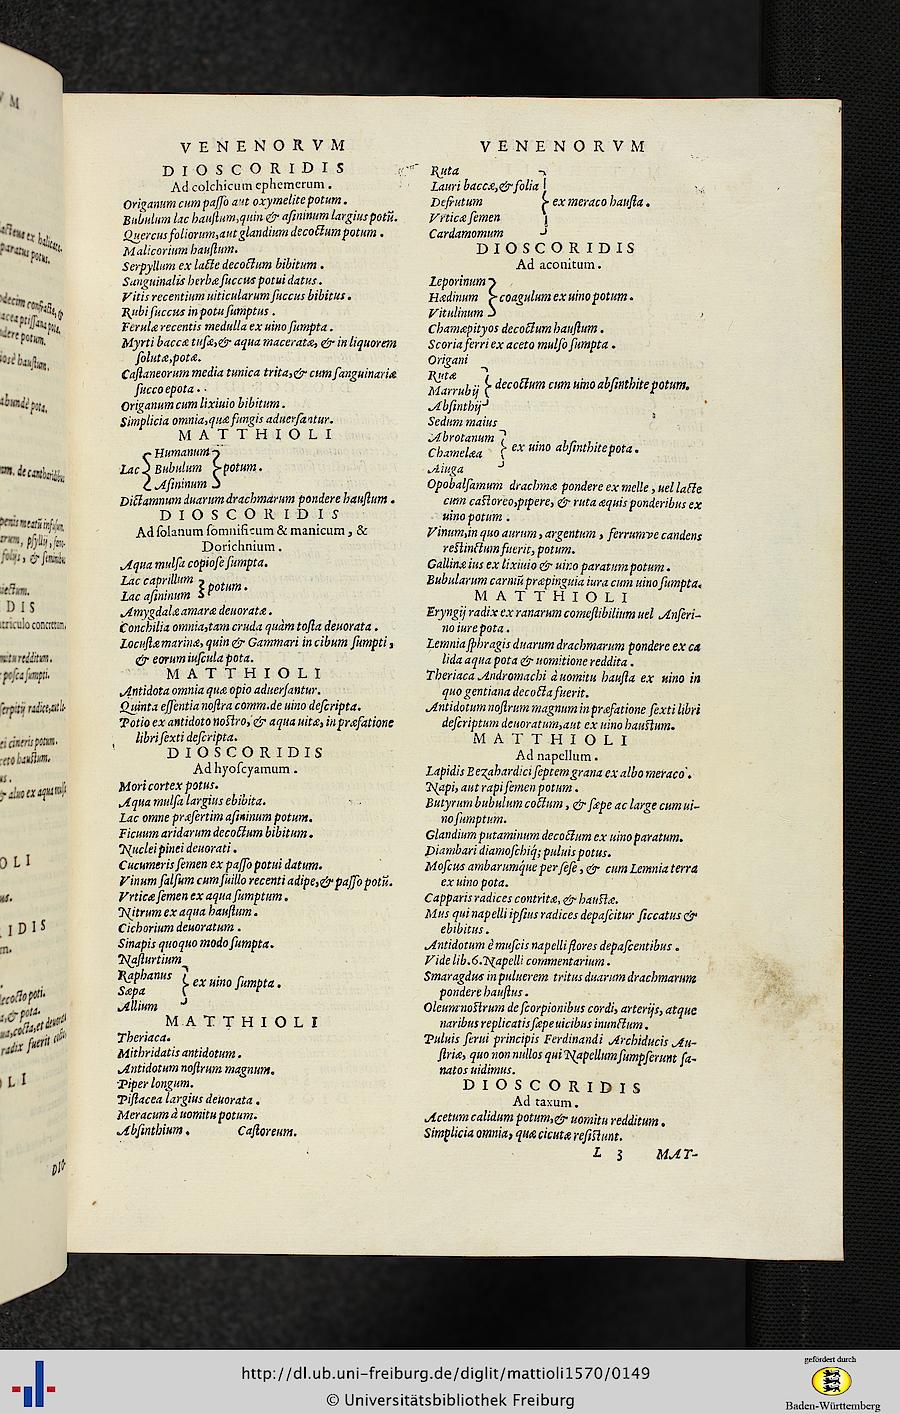 VENENORVM
DIOSCORIDIS
Ad colchicum ephemerum.
Origanum cum paſſo aut oxymelite potum.
Bubulum lac hauſtum, quin & aſininum largius potũ.
Quercus foliorum, aut glandium decoctum potum.
Malicorium hauſtum.
Serpyllum ex lacte decoctum bibitum.
Sanguinalis herbæ ſuccus potui datus.
Vitis recentium uiticularum ſuccus bibitus.
Rubi ſuccus in potu ſumptus.
Ferulæ recentis medulla ex uino ſumpta.
Myrti baccæ tuſæ, & aqua maceratæ, & in liquorem
ſolutæ, potæ.
Caſtaneorum media tunica trita, & cum ſanguinariæ
ſucco epota.
Origanum cum lixiuio bibitum.
Simplicia omnia, quæ fungis aduerſantur.
MATTHIOLI
Humanum
Lac Bubulum potum.
Aſininum
Dictamnum duarum drachmarum pondere hauſtum.
DIOSCORIDIS
Ad ſolanum ſomnificum & manicum, &
Dorichnium.
Aqua mulſa copioſe ſumpta.
Lac caprillum
Lac aſininum potum.
Amygdalæ amaræ deuoratæ.
Conchilia omnia, tam cruda quàm toſta deuorata.
Locuſtæ marinæ, quin & Gammari in cibum ſumpti,
& eorum iuſcula pota.
MATTHIOLI
Antidota omnia quæ opio aduerſantur.
Quinta eſſentia noſtra comm. de uino deſcripta.
Potio ex antidoto noſtro, & aqua uitæ, in præfatione
libri ſexti deſcripta.
DIOSCORIDIS
Ad hyoſcyamum.
Mori cortex potus.
Aqua mulſa largius ebibita.
Lac omne præſertim aſininum potum.
Ficuum aridarum decoctum bibitum.
Nuclei pinei deuorati.
Cucumeris ſemen ex paſſo potui datum.
Vinum ſalſum cum ſuillo recenti adipe, & paſſo potũ.
Vrticæ ſemen ex aqua ſumptum.
Nitrum ex aqua hauſtum.
Cichorium deuoratum.
Sinapis quoquo modo ſumpta.
Naſturtium
Raphanus
Sæpa ex uino ſumpta.
Allium
MATTHIOLI
Theriaca.
Mithridatis antidotum.
Antidotum noſtrum magnum.
Piper longum.
Piſtacea largius deuorata.
Meracum à uomitu potum.
Abſinthium. Caſtoreum.
VENENORVM
Ruta
Lauri baccæ, & folia
Defrutum ex meraco hauſta.
Vrticæ ſemen
Cardamomum
DIOSCORIDIS
Ad aconitum.
Leporinum
Hædinum coagulum ex uino potum.
Vitulinum
Chamæpityos decoctum hauſtum.
Scoria ferri ex aceto mulſo ſumpta.
Origani
Rutæ
Marrubij decoctum cum uino abſinthite potum.
Abſinthij
Sedum maius
Abrotanum
Chamelæa ex uino abſinthite pota.
Aiuga
Opobalſamum drachmæ pondere ex melle, uel lacte
cum caſtoreo, pipere, & ruta æquis ponderibus ex
uino potum.
Vinum, in quo aurum, argentum, ferrumve candens
reſtinctum fuerit, potum.
Gallinæ ius ex lixiuio & uino paratum potum.
Bubularum carniũ præpinguia iura cum uino ſumpta.
MATTHIOLI
Eryngij radix ex ranarum comeſtibilium uel Anſeri-
no iure pota.
Lemnia ſphragis duarum drachmarum pondere ex ca
lida aqua pota & uomitione reddita.
Theriaca Andromachi à uomitu hauſta ex uino in
quo gentiana decocta fuerit.
Antidotum noſtrum magnum in præfatione ſexti libri
deſcriptum deuoratum, aut ex uino hauſtum.
MATTHIOLI
Ad napellum.
Lapidis Bezahardici ſeptem grana ex albo meraco.
Napi, aut rapi ſemen potum.
Butyrum bubulum coctum, & ſæpe ac large cum ui-
no ſumptum.
Glandium putaminum decoctum ex uino paratum.
Diambari diamoſchiq; puluis potus.
Moſcus ambarumque per ſeſe, & cum Lemnia terra
ex uino pota.
Capparis radices contritæ, & hauſtæ.
Mus qui napelli ipſius radices depaſcitur ſiccatus &
ebibitus.
Antidotum è muſcis napelli flores depaſcentibus.
Vide lib. 6. Napelli commentarium.
Smaragdus in puluerem tritus duarum drachmarum
pondere hauſtus.
Oleum noſtrum de ſcorpionibus cordi, arterijs, atque
naribus replicatis ſæpe uicibus inunctum.
Puluis ſerui principis Ferdinandi Archiducis Au-
ſtriæ, quo non nullos qui Napellum ſumpſerunt ſa-
natos uidimus.
DIOSCORIDIS
Ad taxum.
Acetum calidum potum, & uomitu redditum.
Simplicia omnia, quæ cicutæ reſiſtunt.
L 3 MAT-
http://dl.ub.uni-freiburg.de/diglit/mattioli1570/0149
© Universitätsbibliothek Freiburg
gefördert durch
Baden-Württemberg